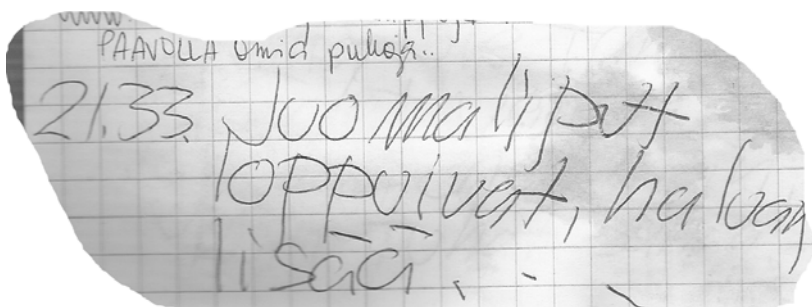 PAAVOLLA omia puhoja..
21.33. Juomaliput
loppuivat, haluan
lisää...